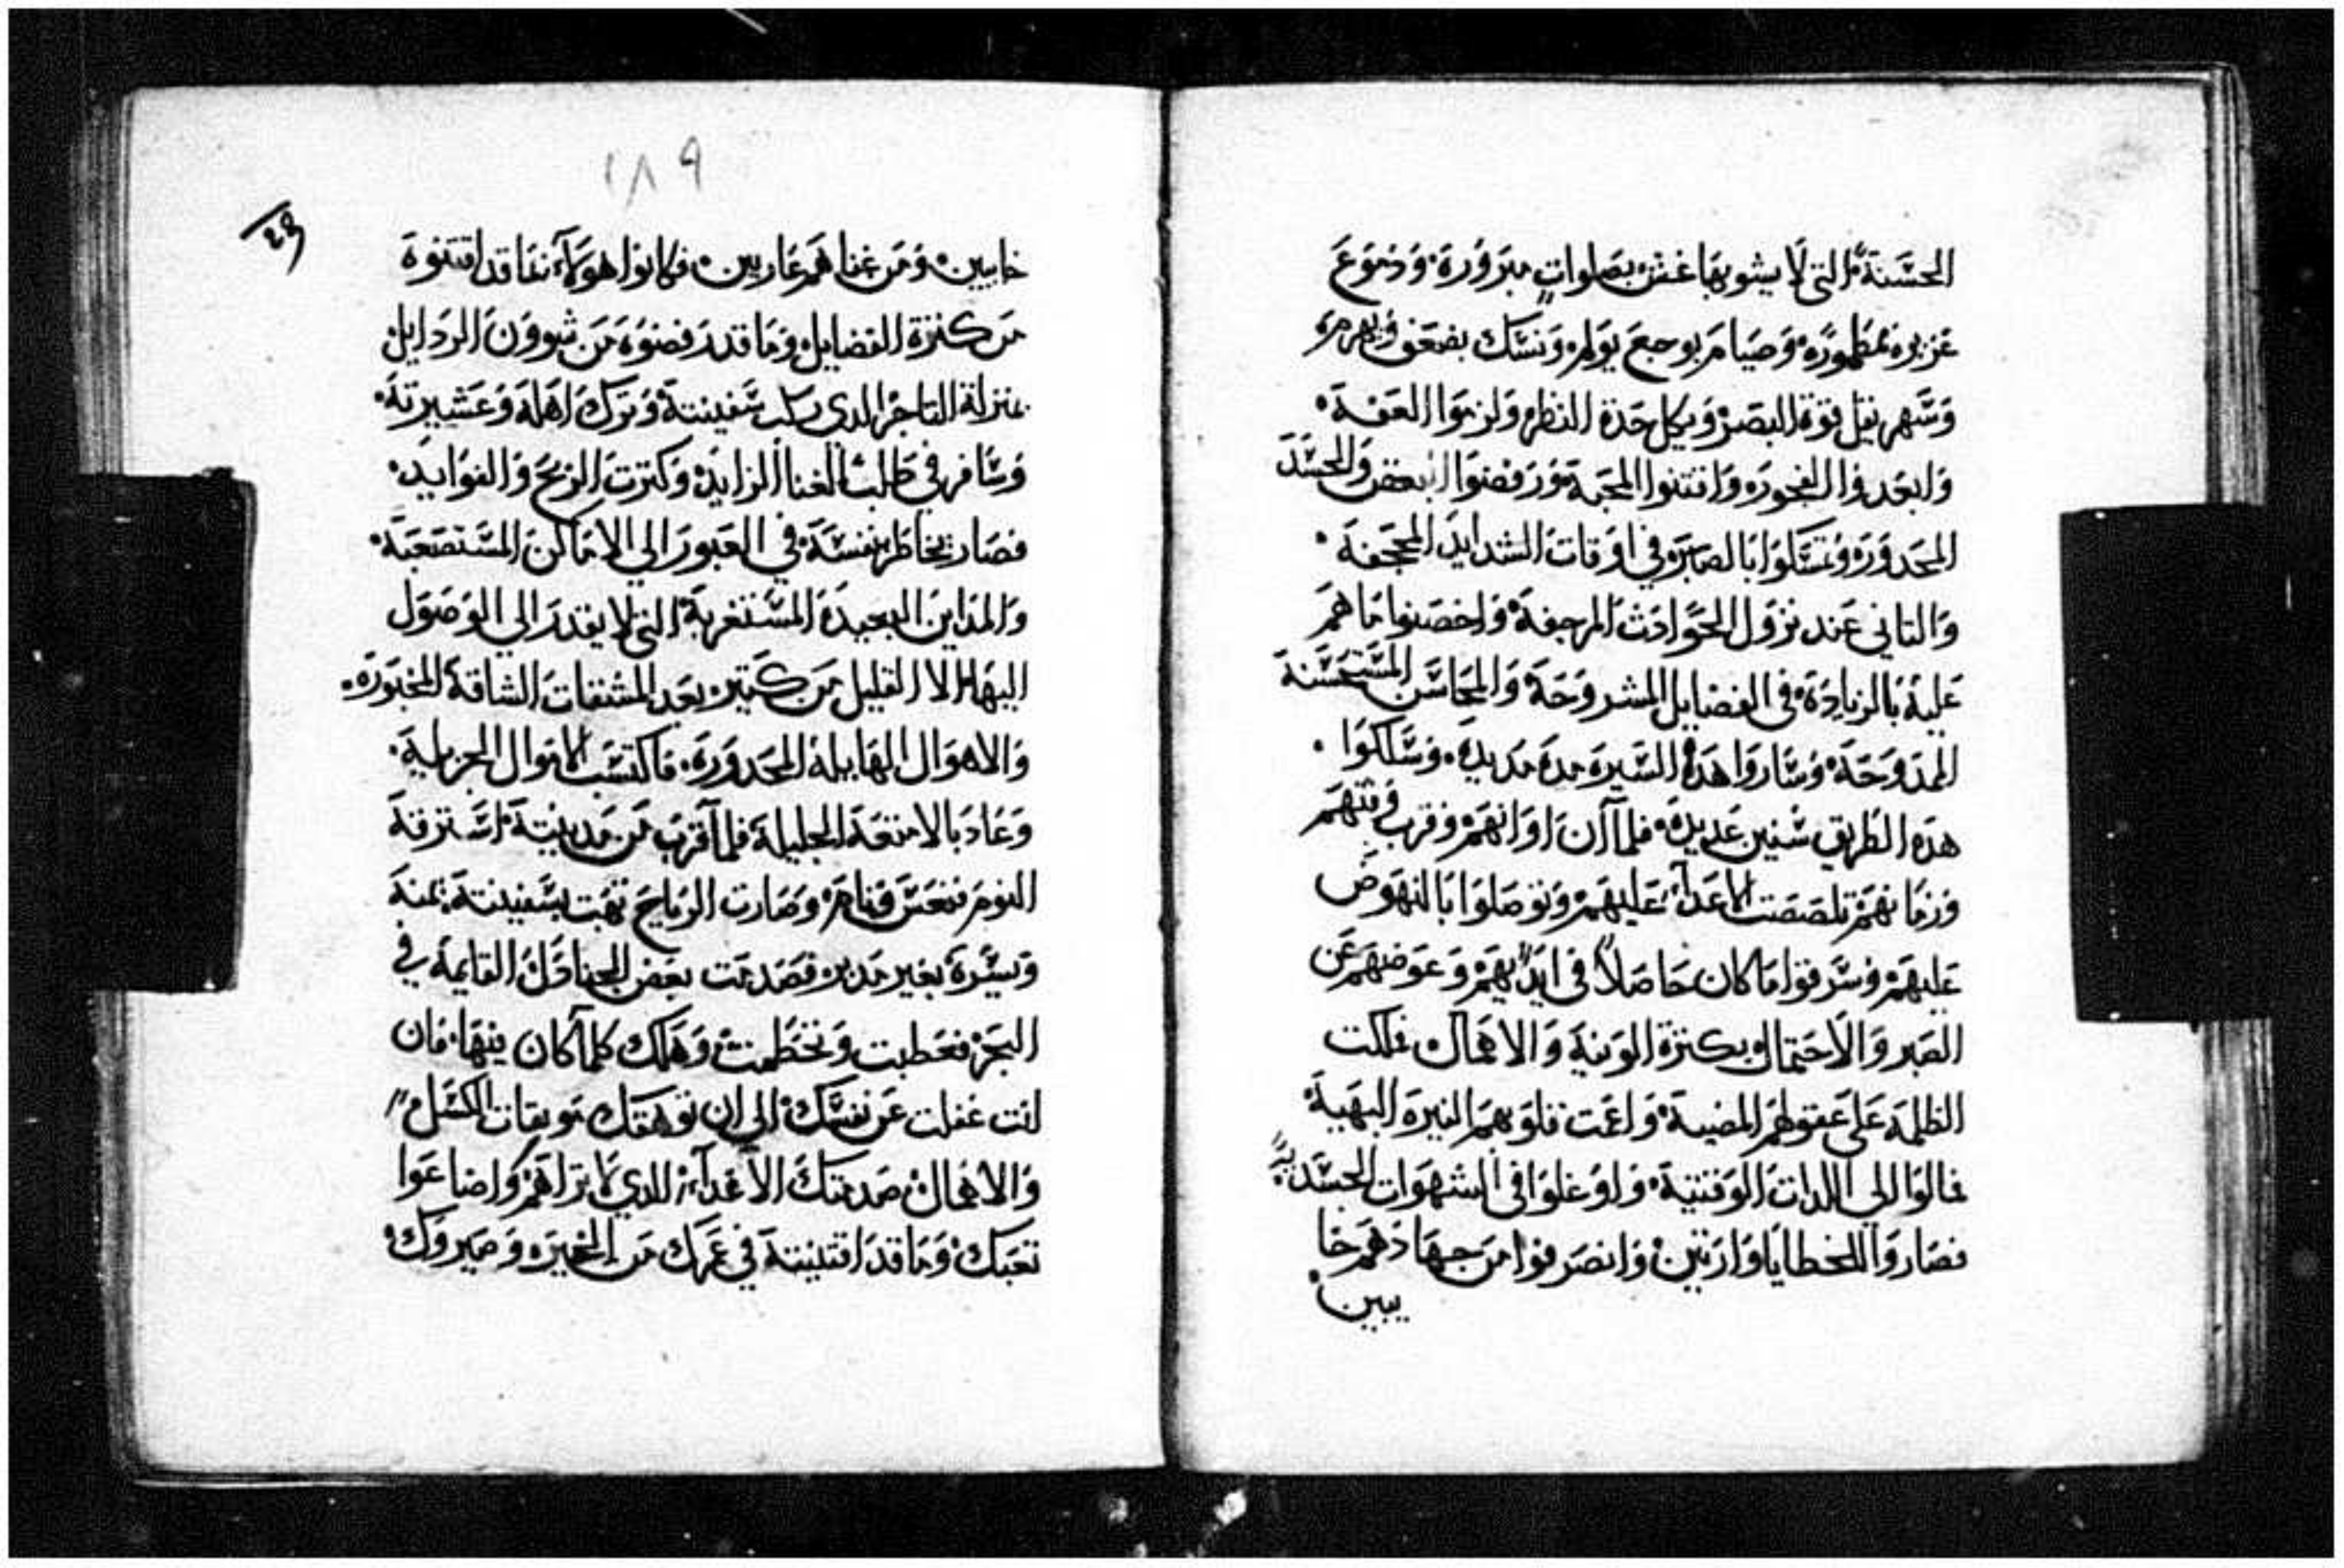 الحسنة التى لا يشوبها غش بصلوات مبرورة ودموع
غزيره ممطوره وصيام بوجع يولم ونسك بضعف ويهرم
وسهر نقل قوة البصر ويكل حدة النظر ولزموا العفة
وابعدوا الفجوره واقتنوا المحبة ورفضوا البغض والحسد
المحدوره وتمسكوا بالصبر في اوقات الشدايد المجحفة
والتاني عند نزول الحوادث المرجفة واخصنوا ما هم
علية بالزيادة في الفضايل المشروحة والمحاسن المستحسنة
الممدوحة وساروا هذة السيرة مدة مديدة وسلكوا
هذه الطريق سنين عديدة فلما آن اوانهم وقرب وقتهم
وزمانهم تلصصت الاعدآء عليهم وتوصلوا بالنهوض
عليهم وسرقوا ما كان حاصلاً في ايديهم وعوضهم عن
الصبر والاحتمال بكثرة الونية والاهمال فملكت
الظلمه على عقولهم المضيية واعمت قلوبهم النيره البهية
فمالوا الى اللدات الوقتية واوغلوا في الشهوات الجسدية
فصاروا للخطايا وارثين وانصرفوا من جهادهم خا
يبين
١٨٩
خايبين ومن غناهم عاريين فكانوا هولآء نفاقد اقتنوة
من كثرة الفضايل وما قد رفضوة من شوون الردايل
بمنزلة التاجر الدي ركب سفينتة وترك اهلة وعشيرتة
وسافر في طلب الغنا الزايد وكترت الربح والفوايد
فصار يخاطر بنفسة في العبور الي الاماكن المستصعبة
والمداين البعيدة المستغربة التي لا يقدر الي الوصول
اليها الا القليل من كتير بعد المشقات الشاقة المخبورة
والاهوال الهايلة المحدورة فاكتسب الاموال الجزيلية
وعاد بالامتعة الجليلة فلما قرب من مدينتة استرقة
النوم فنعس فنام وصارت الرياح تهب بسفينتة يمنة
ويسرة بغير مدبر فصدمت بعض الجنادل القايمة في
البحر فعطبت وتحطمت وهلك كلما كان فيها فان
انت غفلت عن نفسك الي ان توهقك موبقات الكسل
والاهمال صدمتك الاعدآء الدي لا تراهم واضاعوا
تعبك وما قد اقتنيتة في عمرك من الخيره وصيروك